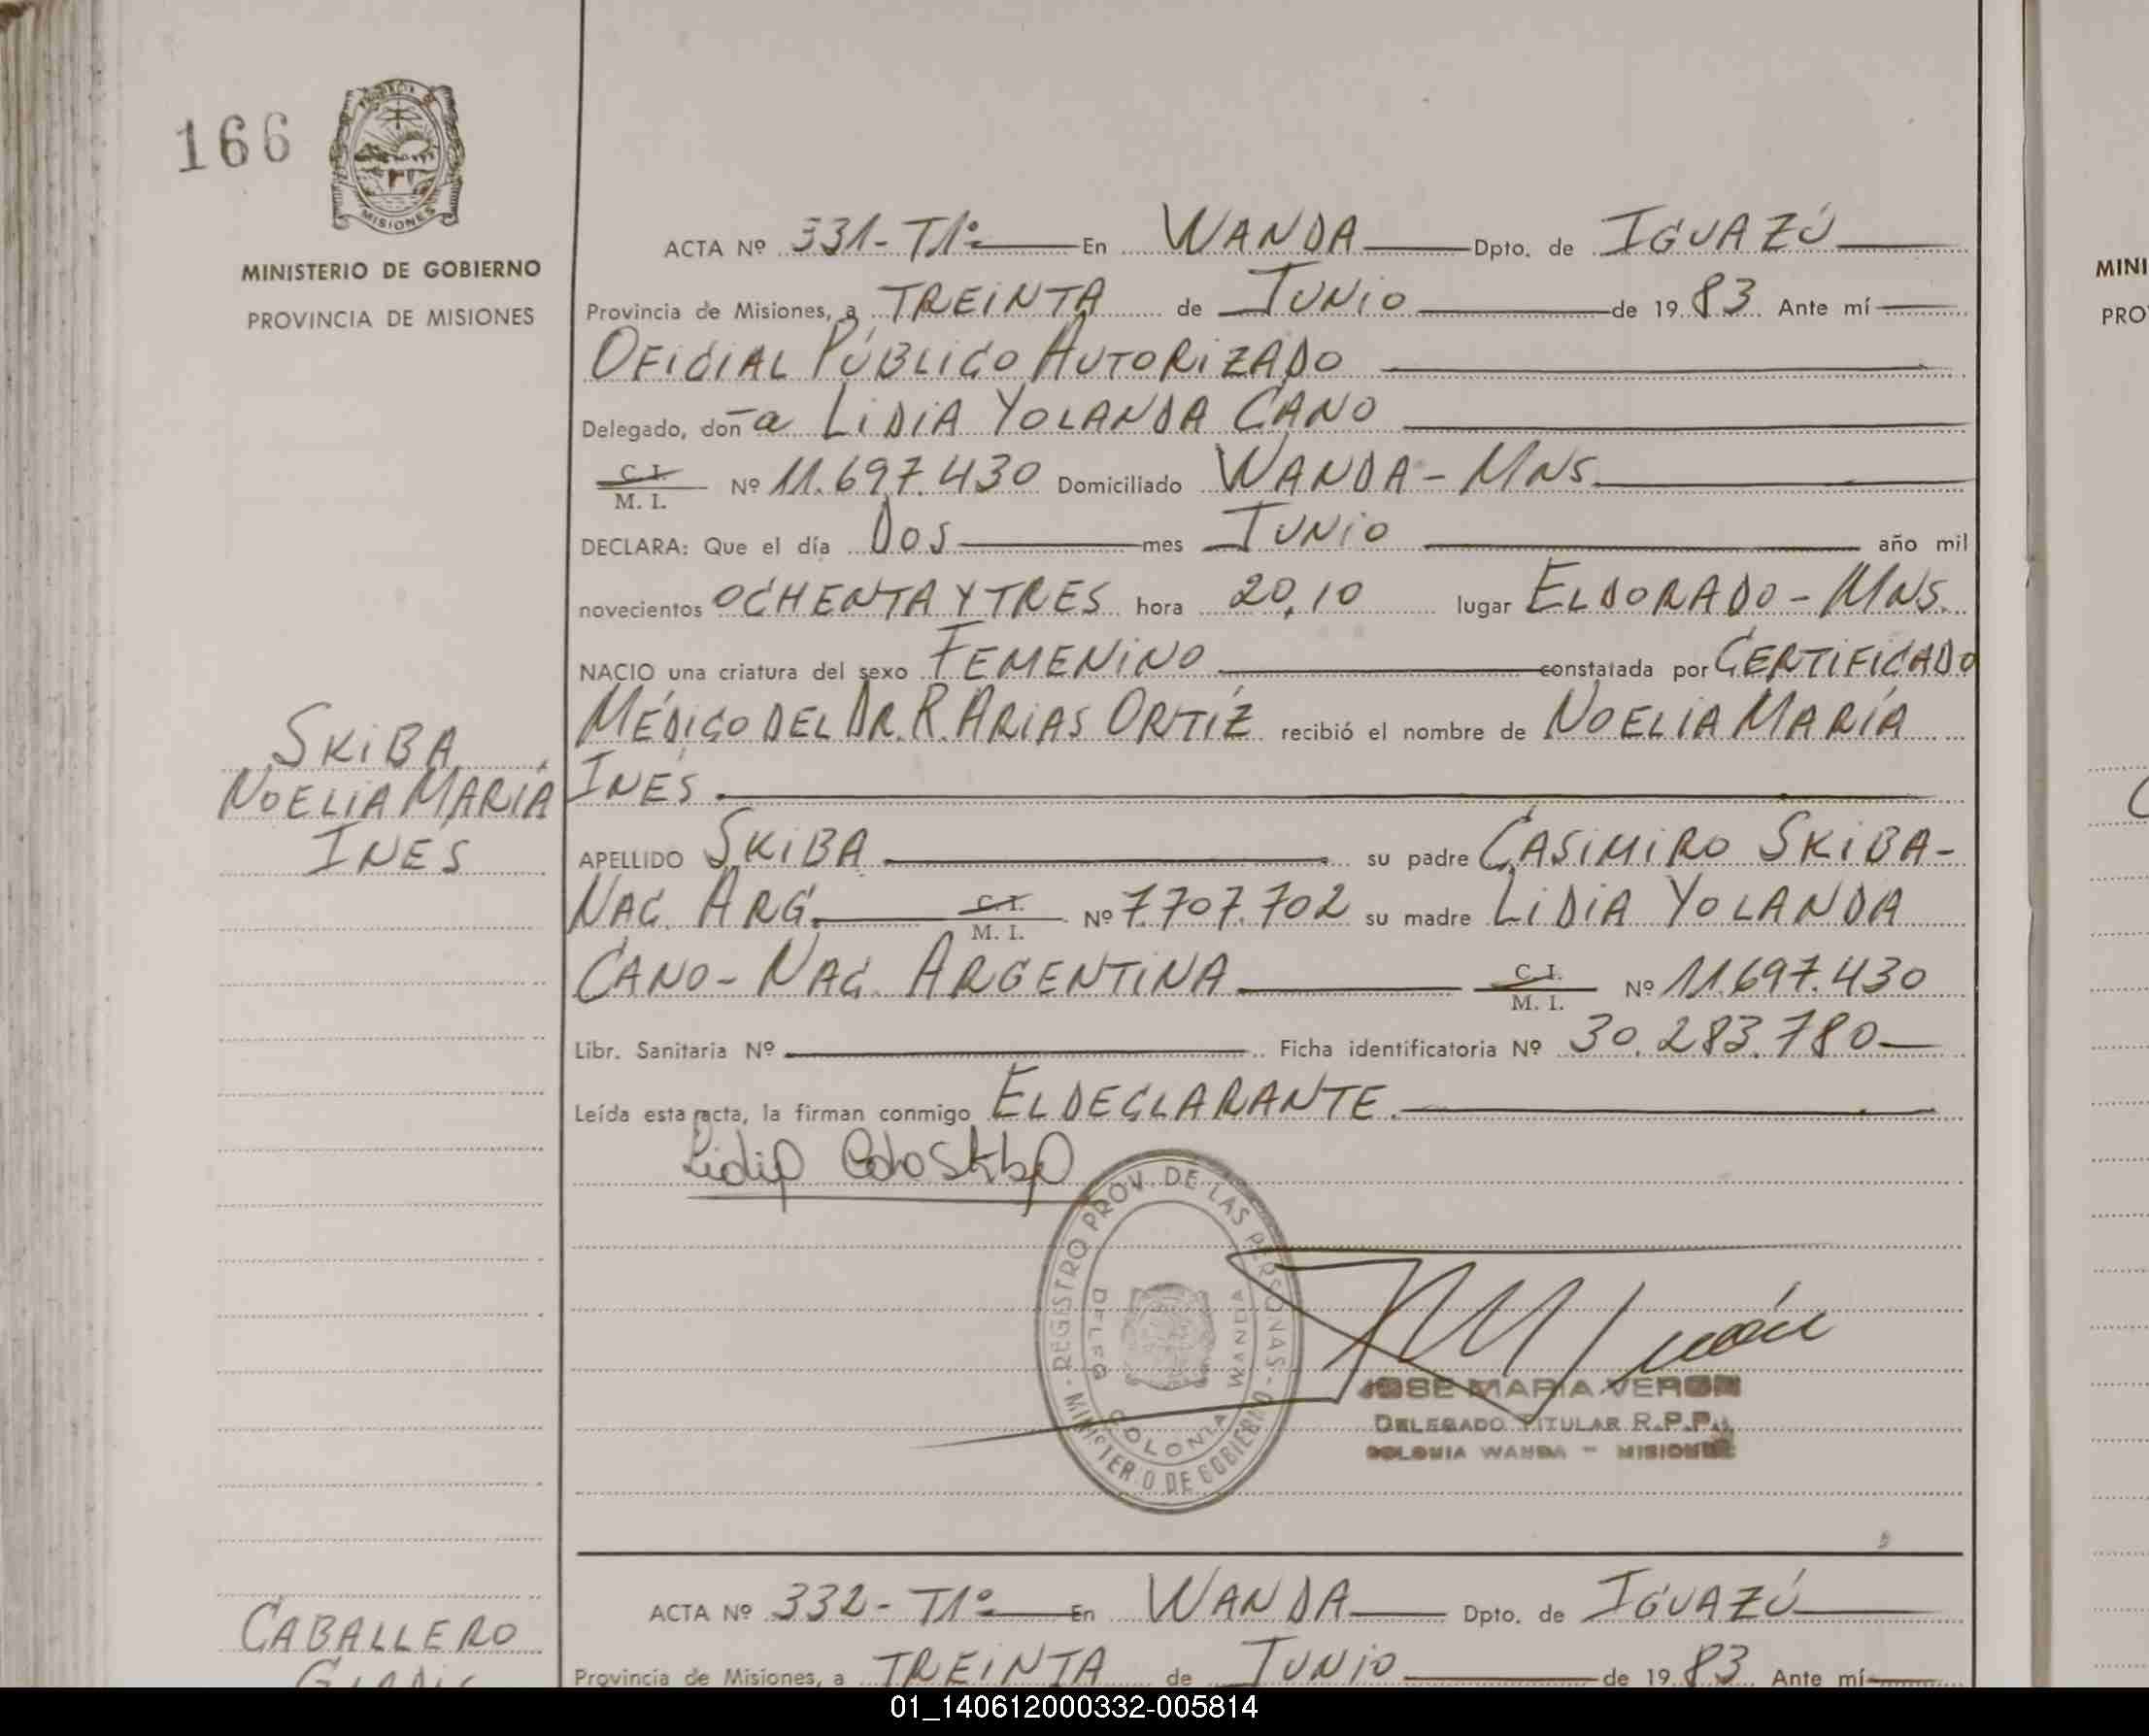 166
MISIONES
MINISTERIO DE GOBIERNO
PROVINCIA DE MISIONES
ACTA Nº 331-T1º En WANDA Dpto. de IGUAZÚ
Provincia de Misiones, a TREINTA de JUNIO de 1983 Ante mí
OFICIAL PÚBLICO AUTORIZADO
Delegado, doña LIDIA YOLANDA CANO
C. I. M. I. Nº 11.697.430 Domiciliado WANDA-MNS.
DECLARA: Que el día DOS mes JUNIO año mil
novecientos OCHENTA Y TRES hora 20,10 lugar ELDORADO-MNS.
NACIO una criatura del sexo FEMENINO constatada por CERTIFICADO
MÉDICO DEL DR. R. ARIAS ORTÍZ recibió el nombre de NOELIA MARÍA
INÉS.
SKIBA
NOELIA MARÍA
INÉS
APELLIDO SKIBA su padre CASIMIRO SKIBA-
NAC. ARG. C. I. M. I. Nº 7.707.702 su madre LIDIA YOLANDA
CANO-NAC. ARGENTINA C. I. M. I. Nº 11.697.430
Libr. Sanitaria Nº Ficha identificatoria Nº 30.283.780
Leída esta acta, la firman conmigo EL DECLARANTE.
Lidia
REGISTRO PROV. DE LAS PERSONAS - MINISTERIO DE GOBIERNO
DELEG. COLONIA WANDA
JOSE MARIA VERON
DELEGADO TITULAR R.P.P.
COLONIA WANDA - MISIONES
ACTA Nº 332-T1º En WANDA Dpto. de IGUAZÚ
CABALLERO
Provincia de Misiones, a TREINTA de JUNIO de 1983 Ante mí
MINI
PRO
01_140612000332-005814